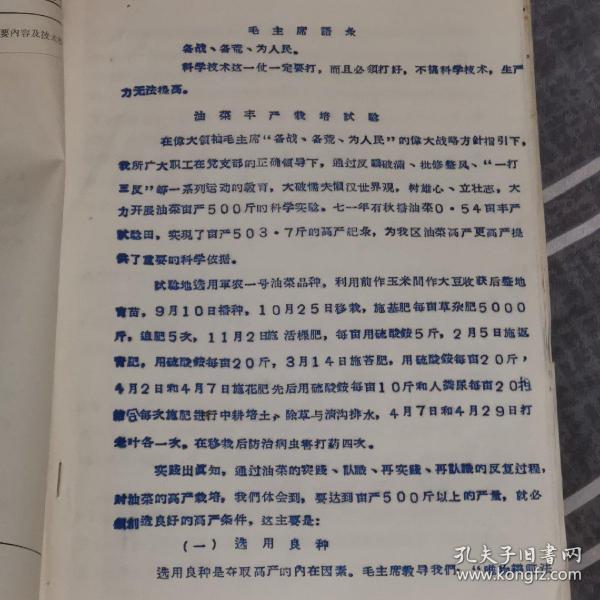 要内容及技术
毛主席語彔
备战、备荒、为人民。
科学技术这一仗一定要打,而且必須打好,不搞科学技术,生产
力无法提高。
油菜丰产栽培試驗
在偉大領袖毛主席“备战、备荒、为人民”的偉大战略方針指引下,
我所广大职工在党支部的正确領导下,通过反驕破滿、批修整风、“一打
三反”等一系列运动的教育,大破懦夫懶汉世界观,树雄心、立壮志,大
力开展油菜亩产500斤的科学实驗。七一年有秋播油菜0·54亩丰产
試驗田,实現了亩产503·7斤的高产紀彔,为我区油菜高产更高产提
供了重要的科学依据。
試驗地选用軍农一号油菜品种,利用前作玉米間作大豆收获后整地
育苗,9月10日播种,10月25日移栽,施基肥每亩草杂肥5000
斤,追肥5次,11月2日施活棵肥,每亩用硫酸銨5斤,2月5日施返
青肥,用硫酸銨每亩20斤,3月14日施苔肥,用硫酸銨每亩20斤,
4月2日和4月7日施花肥先后用硫酸銨每亩10斤和人糞尿每亩20担
結合每次施肥进行中耕培土,除草与清沟排水,4月7日和4月29日打
老叶各一次。在移栽后防治病虫害打葯四次。
实践出眞知,通过油菜的实践、认識、再实践、再认識的反复过程,
对油菜的高产栽培,我們体会到,要达到亩产500斤以上的产量,就必
須創造良好的高产条件,这主要是:
(一)选用良种
选用良种是夺取高产的内在因素。毛主席教导我們,“唯物辯証法
孔夫子旧书网
www.kongfz.com